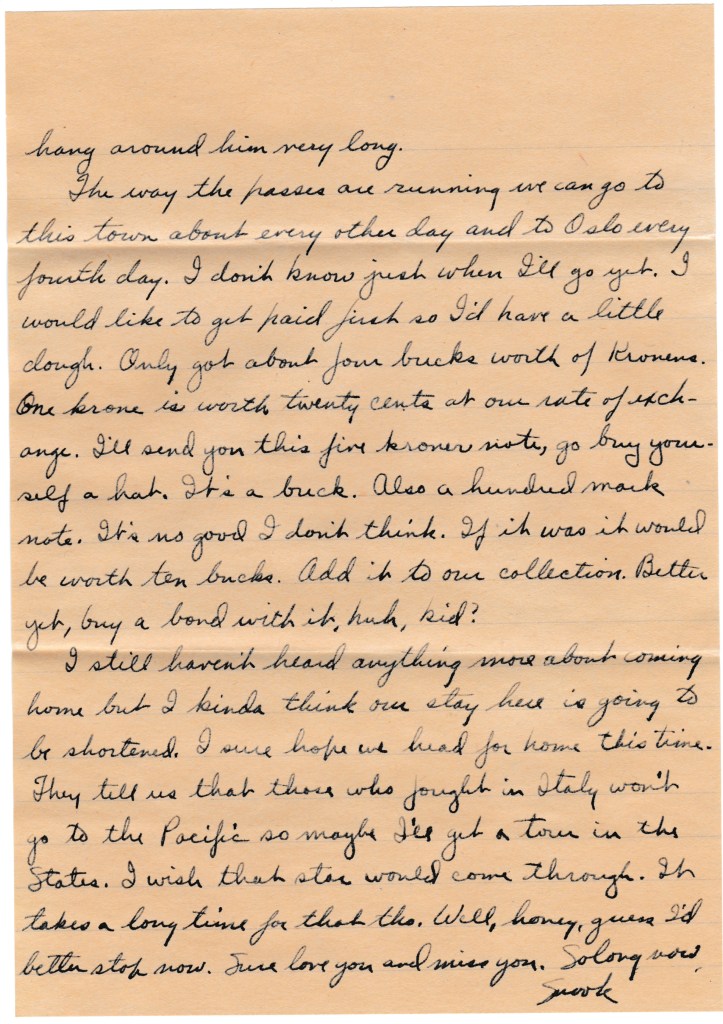 hang around him very long.
The way the passes are running we can go to
this town about every other day and to Oslo every
fourth day. I don't know just when I'll go yet. I
would like to get paid first so I'd have a little
dough. Only got about four bucks worth of Kroners.
One krone is worth twenty cents at our rate of exch-
ange. I'll send you this five kroner note, go buy your-
self a hat. It's a buck. Also a hundred mark
note. It's no good I don't think. If it was it would
be worth ten bucks. Add it to our collection. Better
yet, buy a bond with it, huh, kid?
I still haven't heard anything more about coming
home but I kinda think our stay here is going to
be shortened. I sure hope we head for home this time.
They tell us that those who fought in Italy won't
go to the Pacific so maybe I'll get a tour in the
States. I wish that star would come through. It
takes a long time for that tho. Well, honey, guess I'd
better stop now. Sure love you and miss you. So long now,
Snook